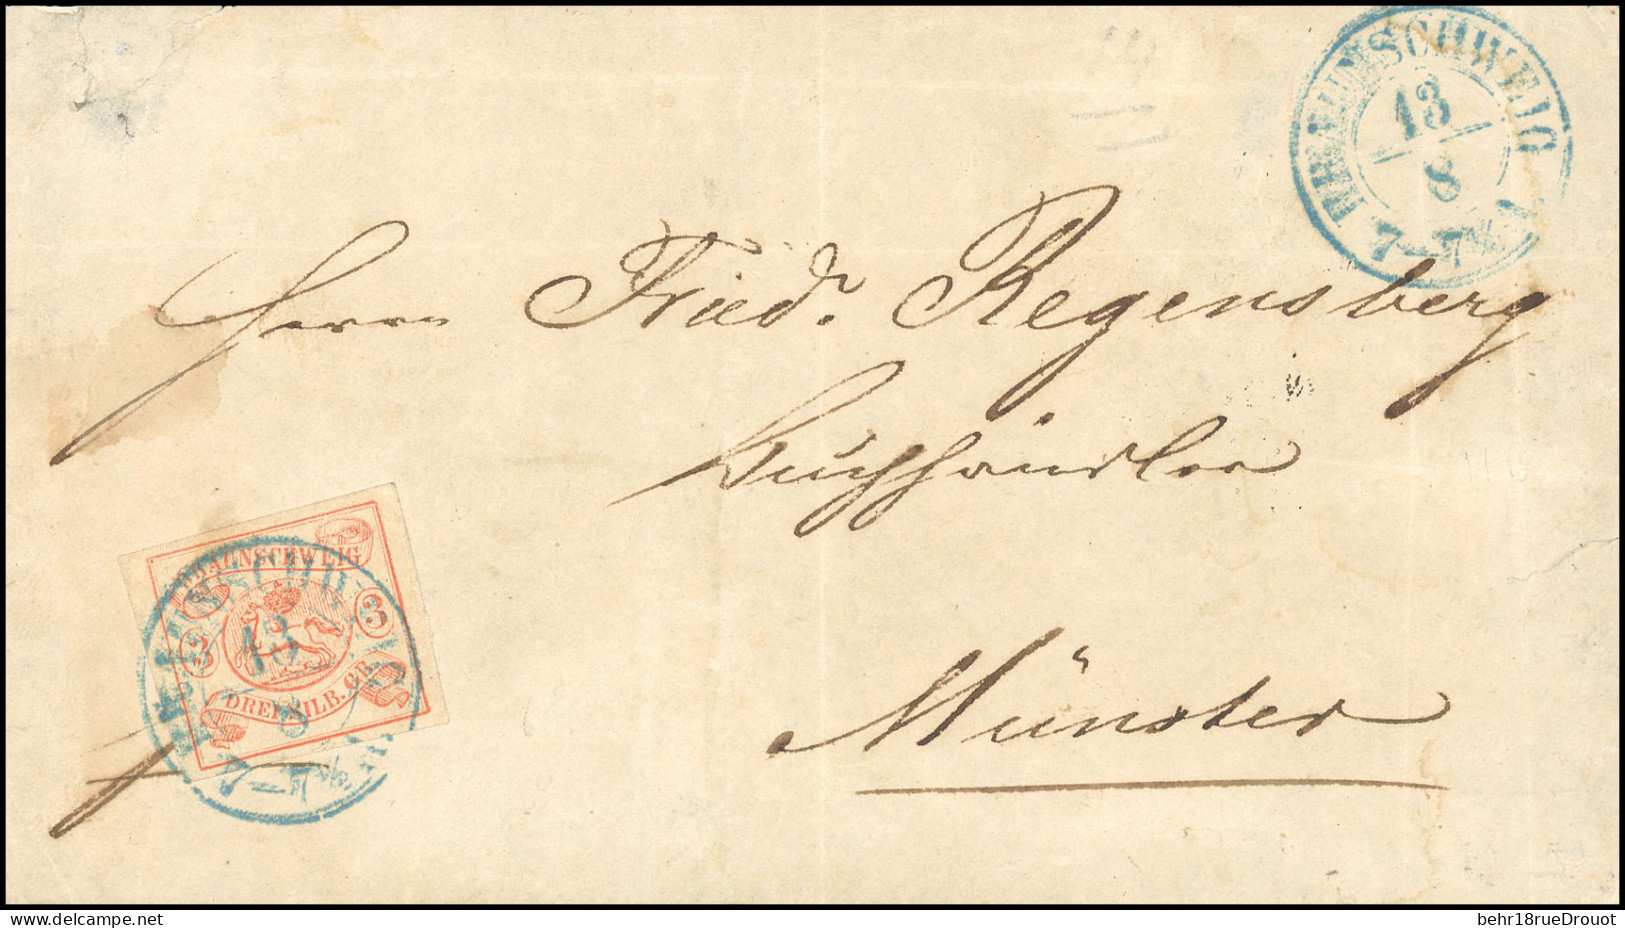 BRAUNSCHWEIG
13
8
7—7½
Herrn Fried. Regensberg
Buchhändler
Münster
BRAUNSCHWEIG
3 3
DREI SILB. GR.
BRAUNSCHWEIG
13
8
7—7½
delcampe.net
behr18rueDrouot